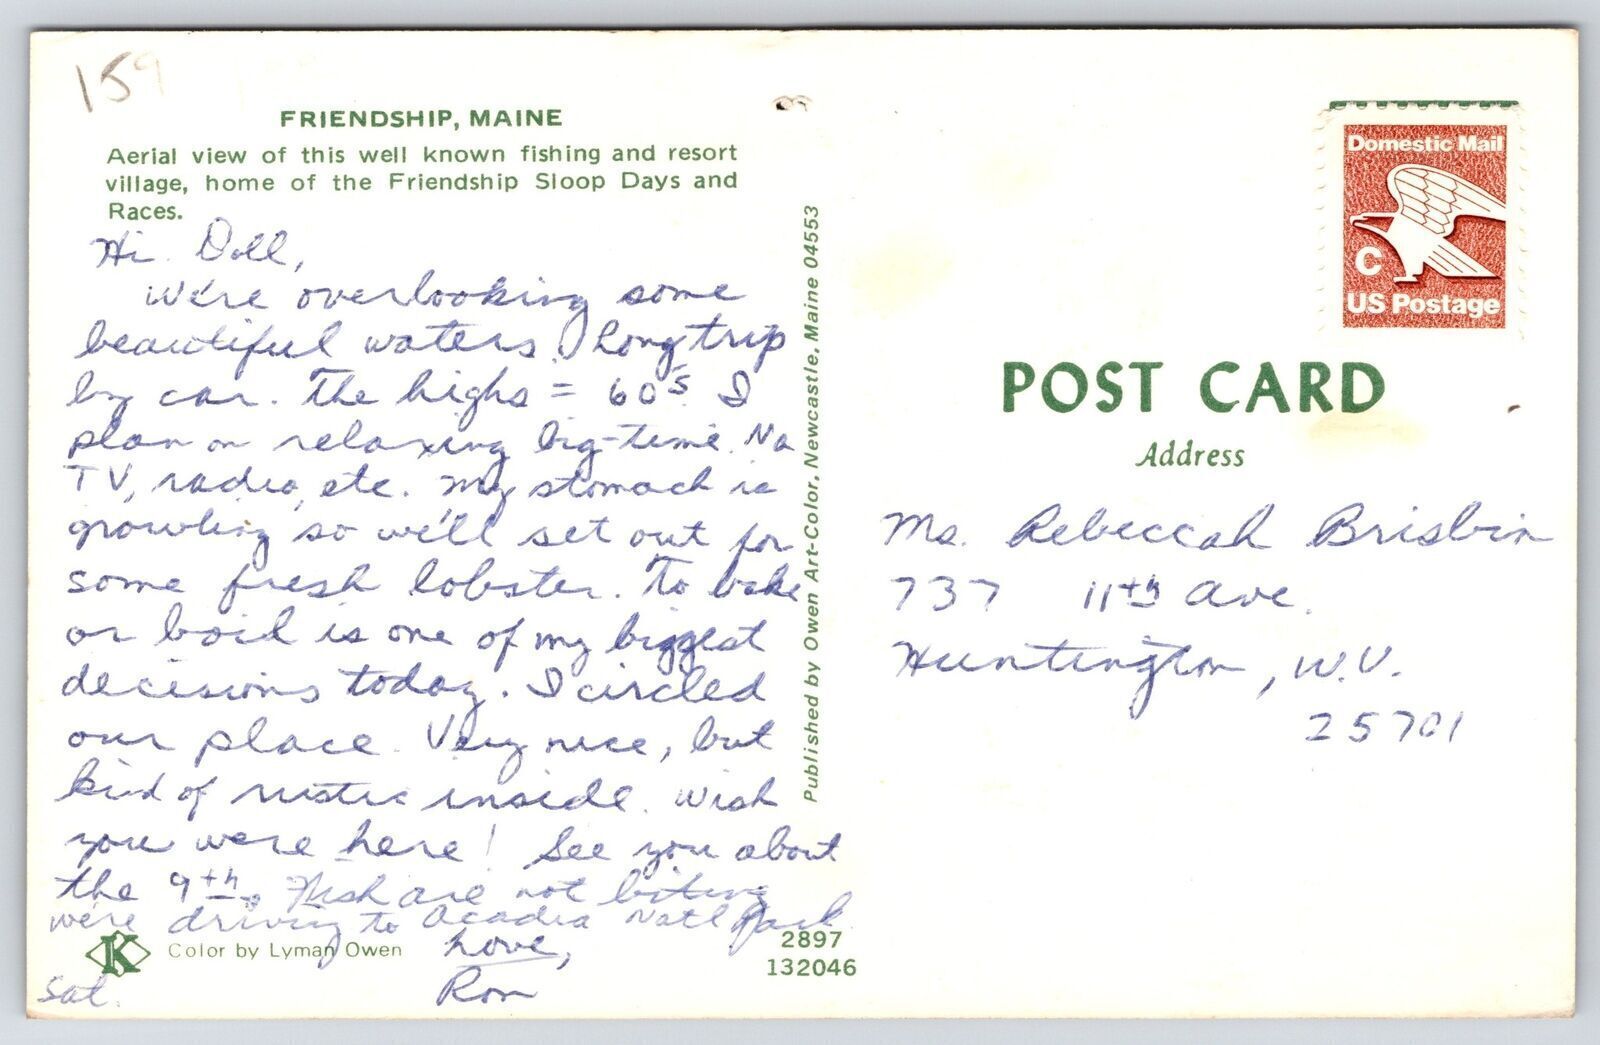 159
FRIENDSHIP, MAINE
Aerial view of this well known fishing and resort
village, home of the Friendship Sloop Days and
Races.
Hi Doll,
We're overlooking some
beautiful waters. Long trip
by car. The highs = 60's I
plan on relaxing big-time. No
TV, radio, etc. My stomach is
growling so we'll set out for
some fresh lobster. To bake
or boil is one of my biggest
decisions today. I circled
our place. Very nice, but
kind of rustic inside. Wish
you were here! See you about
the 9th. Fish are not biting
we're driving to Acadia Natl Park
Love,
Ron
Sat.
K
Color by Lyman Owen
2897
132046
Published by Owen Art-Color, Newcastle, Maine 04553
Domestic Mail
C
US Postage
POST CARD
Address
Ms. Rebeccah Brisbin
737 11th Ave.
Huntington, W.V.
25701